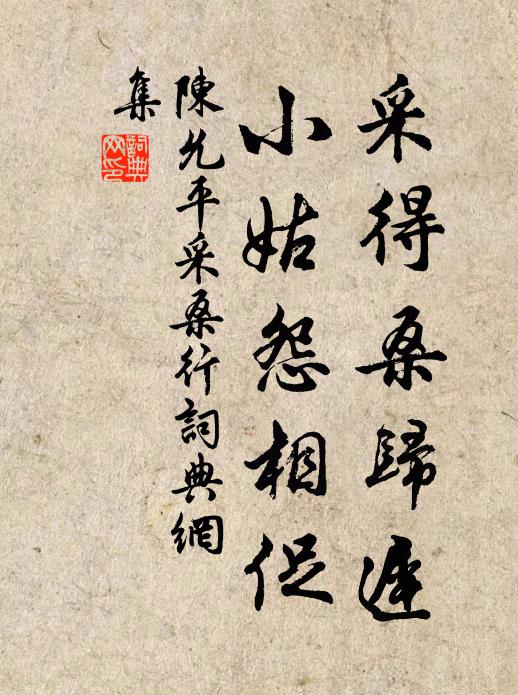 采得桑歸遲
小姑怨相促
陳允平采桑行詞典網
集
詞典
网印